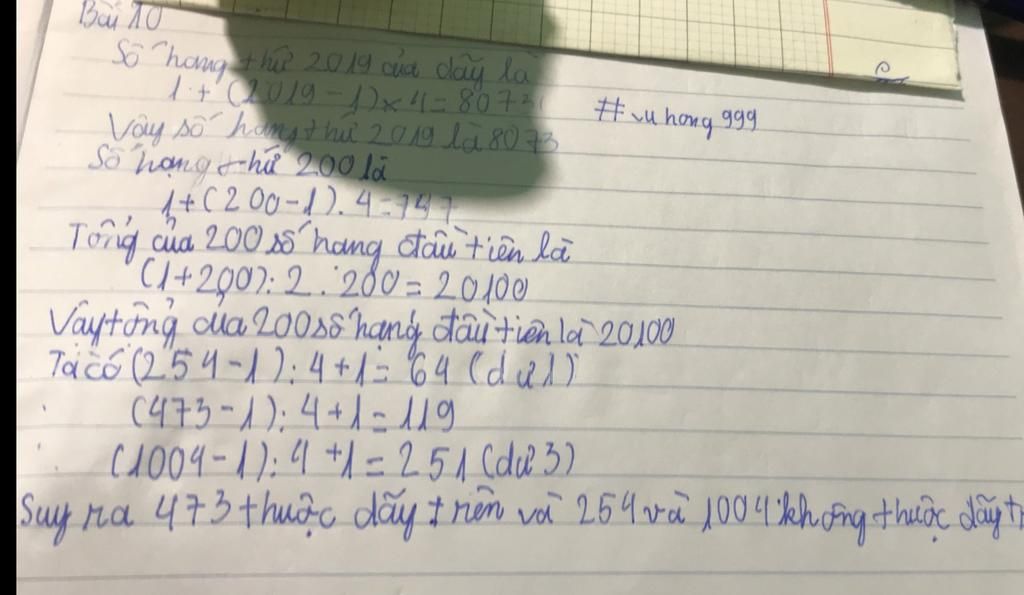 Bài 10
Số hạng thứ 2019 của dãy là
1 + (2019 - 1) × 4 = 8073
# vu hong 999
Vậy số hạng thứ 2019 là 8073
Số hạng thứ 200 là
1 + (200 - 1) . 4 = 747
Tổng của 200 số hạng đầu tiên là
(1 + 200) : 2 . 200 = 20100
Vậy tổng của 200 số hạng đầu tiên là 20100
Ta có (254 - 1) : 4 + 1 = 64 (dư 1)
(473 - 1) : 4 + 1 = 119
(1004 - 1) : 4 + 1 = 251 (dư 3)
Suy ra 473 thuộc dãy trên và 254 và 1004 không thuộc dãy